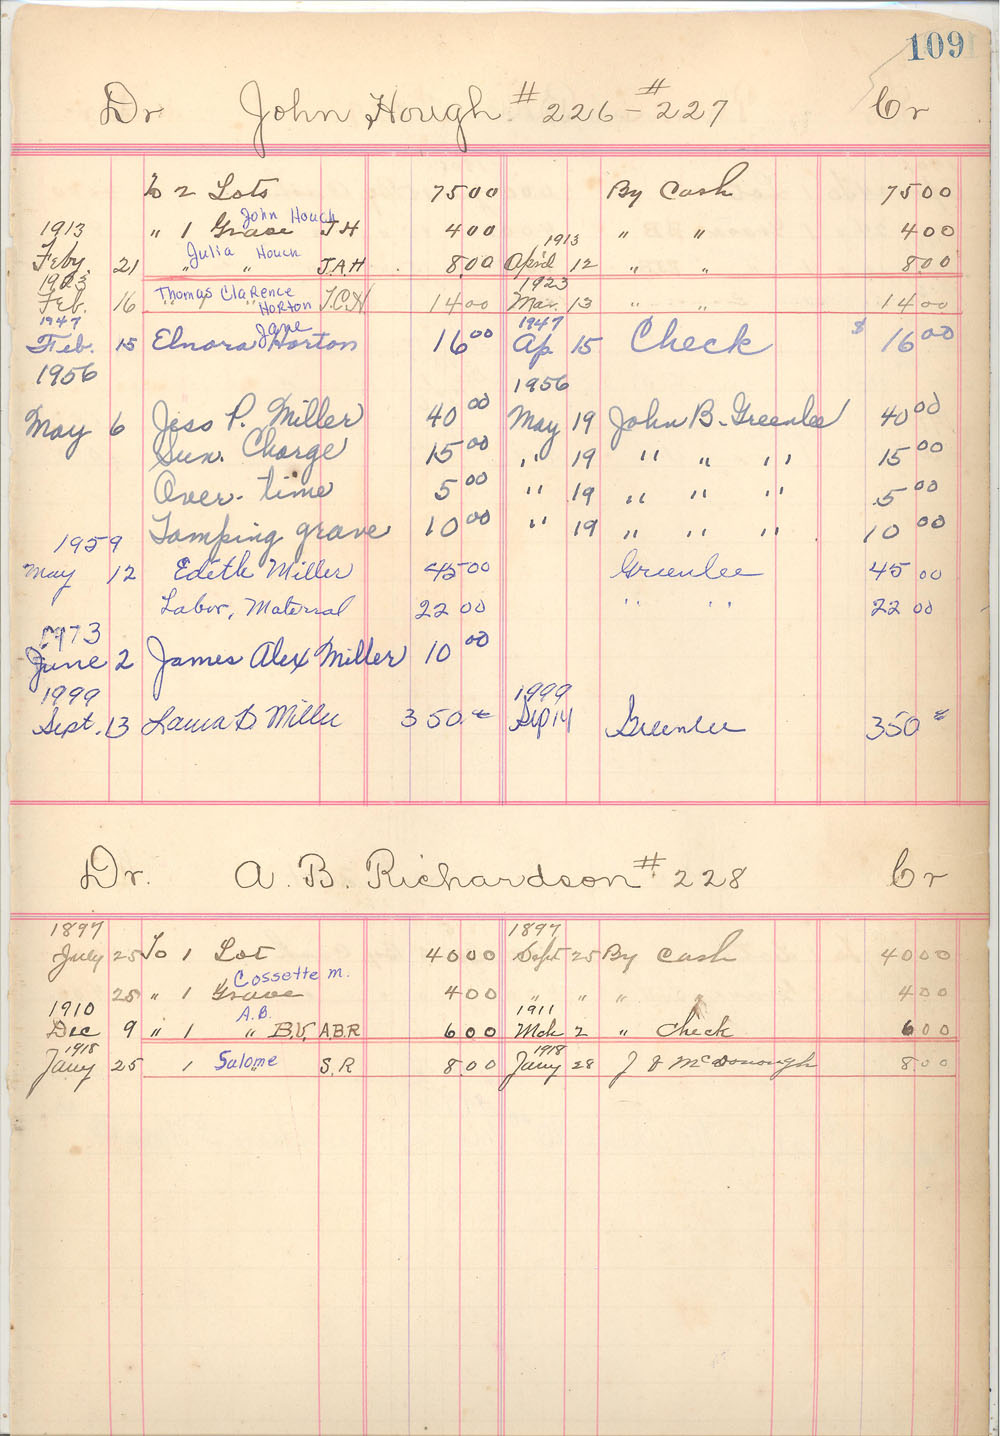 109
Dr John Hough #226 - #227 Cr
To 2 Lots 75 00 By Cash 75 00
John Houch
1913 " 1 Grave J H 4 00 " " 4 00
Julia Houch 1913
Feby. 21 " " J.A.H 8 00 April 12 " " 8 00
1923 Thomas Clarence 1923
Feb. 16 " " Horton T.C.H 14 00 Mar. 13 " " 14 00
1947 Jane 1947
Feb. 15 Elnora Horton 16 00 Ap. 15 Check $ 16 00
1956 1956
May 6 Jess P. Miller 40 00 May 19 John B. Greenlee 40 00
Sun. Charge 15 00 " 19 " " " 15 00
Over-time 5 00 " 19 " " " 5 00
Tamping grave 10 00 " 19 " " " 10 00
1959
May 12 Edith Miller 45 00 Greenlee 45 00
Labor, Material 22 00 " " 22 00
1973
June 2 James Alex Miller 10 00
1999 1999
Sept. 13 Laura B Miller 350 Sep 14 Greenlee 350
Dr. A. B. Richardson #228 Cr
1897 1897
July 25 To 1 Lot 40 00 Sept 25 By Cash 40 00
Cossette M.
25 " 1 Grave 4 00 " " " 4 00
1910 A.B. 1911
Dec 9 " 1 " B.V. A.B.R 6 00 Mch 2 " Check 6 00
1918 1918
Jany 25 1 Salome S.R 8 00 Jany 28 J J McDonough 8 00